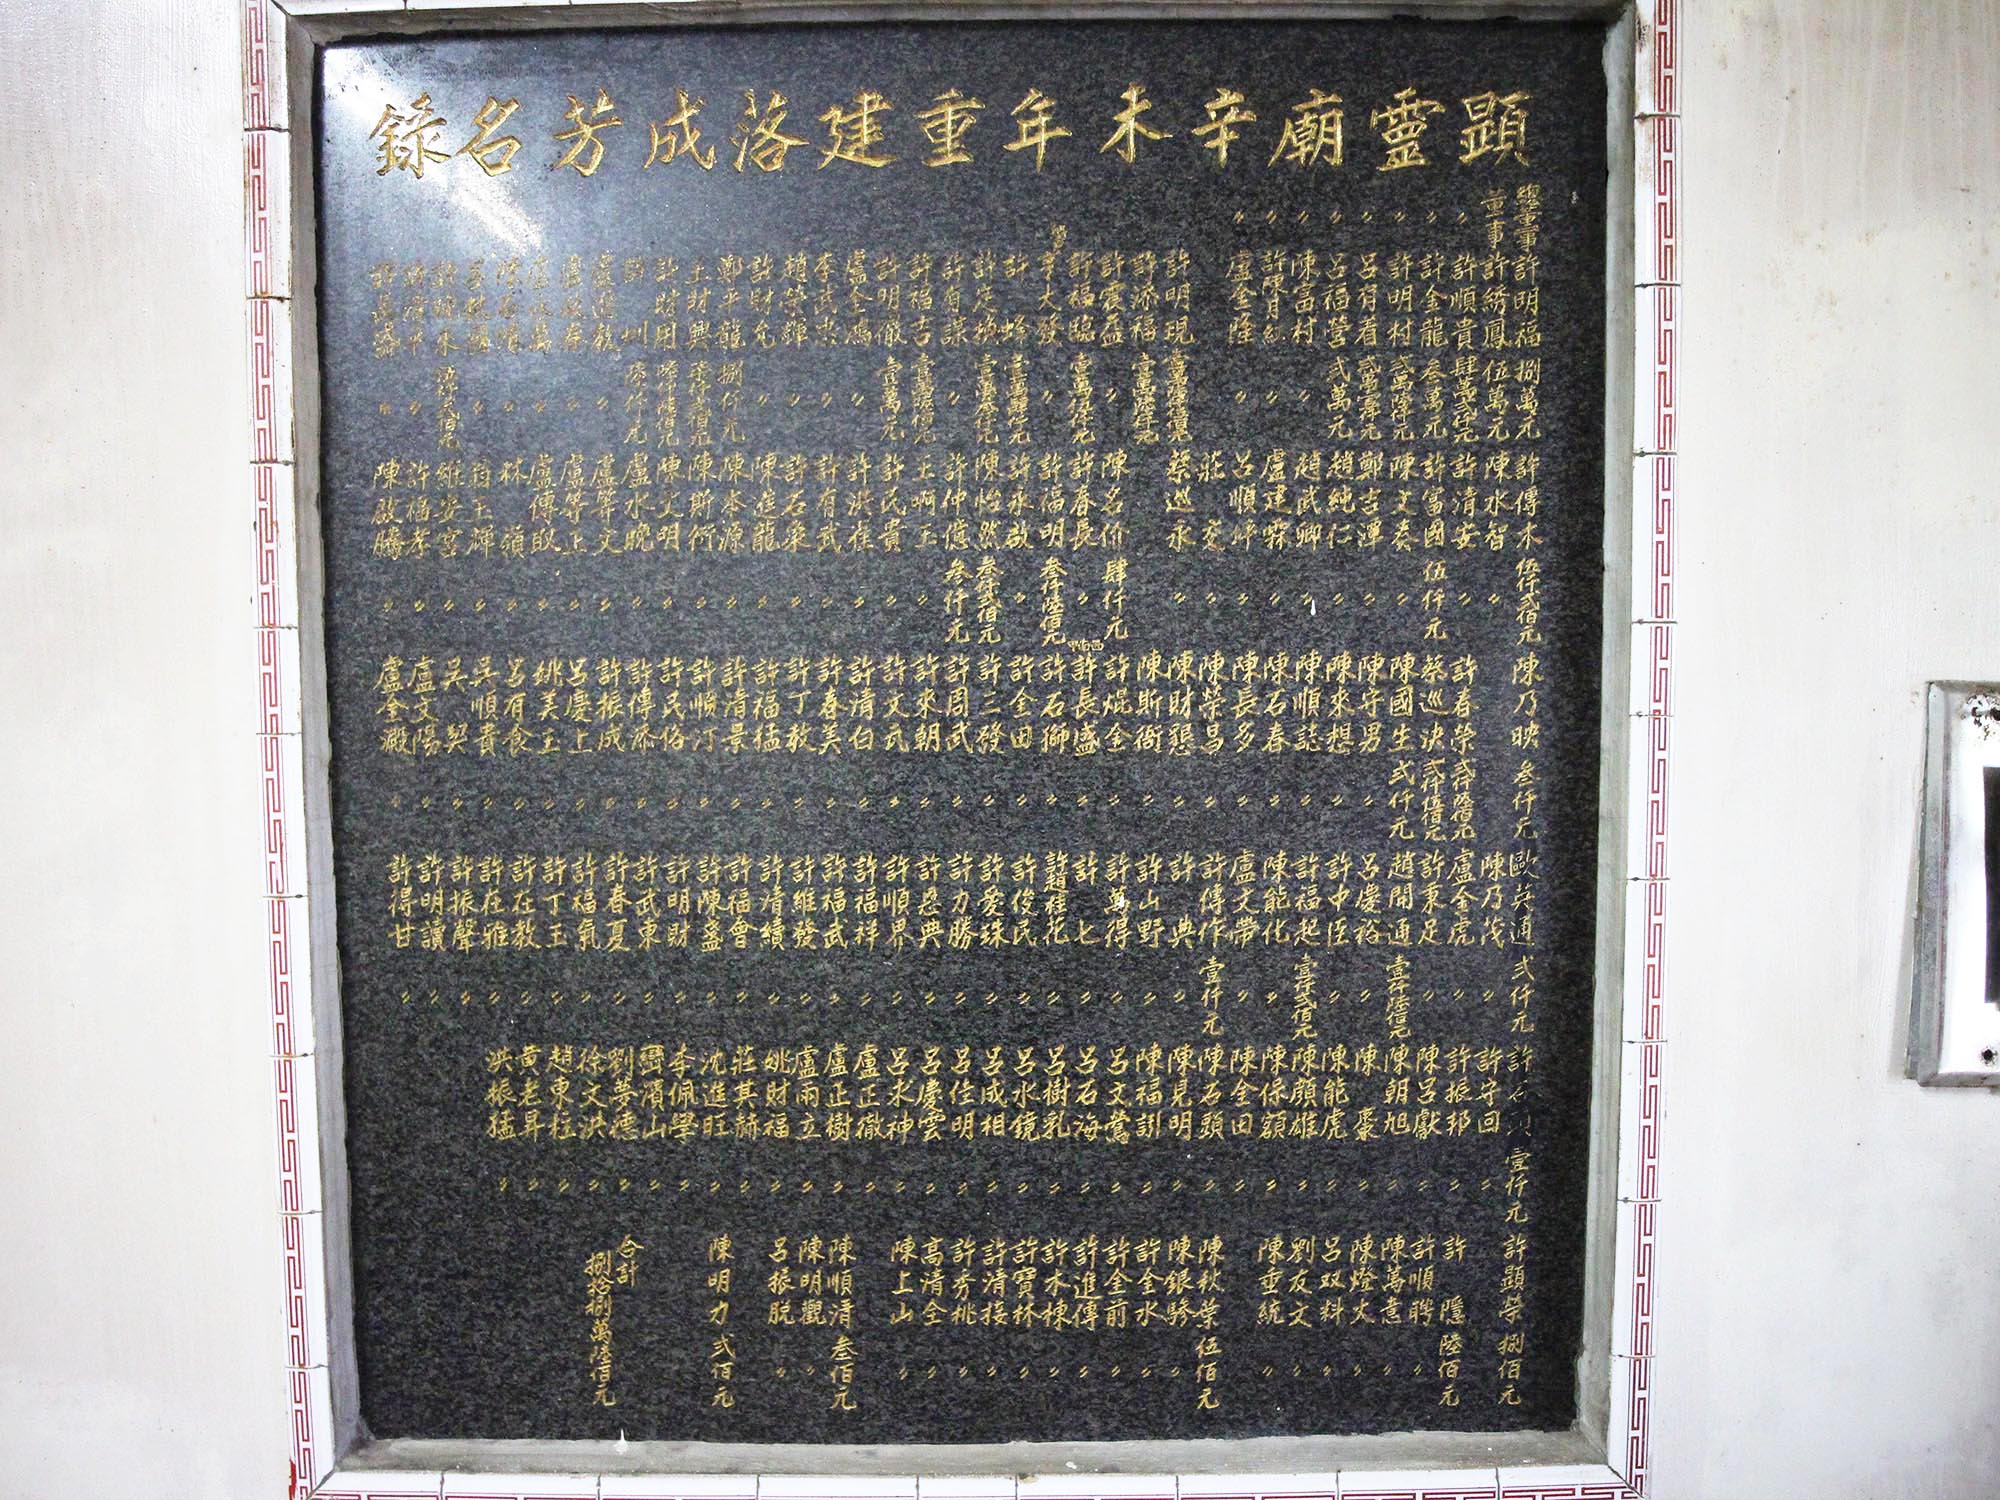 顕靈廟辛未年重建落成芳名錄
總董事 許明福 捌萬元
董事 許綉鳳 伍萬元
〃 許順貴 肆萬弍仟元
〃 許金龍 叁萬元
〃 許明村 弍萬陸仟元
〃 呂有看
〃 呂福營 弍萬元
〃 陳富村 〃
〃 〃
〃 盧金隆 〃
許明現
許添福 壹萬陸仟元
許寶益 〃
許福臨 壹萬伍仟元
辛大發 〃
許蜂 壹萬肆仟元
許定換 壹萬叁仟元
許有謀 〃
許福吉
許明徹 壹萬元
盧全鴻 〃
李武忠 〃
趙榮輝 〃
許財允 〃
鄭平龍 捌仟元
王財興 柒仟弍佰元
許財國 陸仟陸佰元
許圳 陸仟元
盧進教 〃
〃
〃
〃
〃
伍仟弍佰元
〃
〃
許傳木 伍仟弍佰元
陳水智 〃
許清安 〃
許富國 伍仟元
陳文奏 〃
鄭吉潭 〃
趙純仁 〃
趙武卿 〃
盧建霖 〃
呂順坪 〃
莊麥 〃
蔡巡永 〃
陳名价 肆仟元
許春長 〃
許福明 叁仟陸佰元
許永啟 〃
陳怡然 叁仟弍佰元
許仲億 叁仟元
王啊玉 〃
許民貴 〃
許洪崔 〃
許有武 〃
許石來 〃
陳進龍 〃
陳本源 〃
陳斯衍 〃
陳文明 〃
盧水晚 〃
盧算文 〃
盧等上 〃
盧傳取 〃
林領 〃
翁玉輝 〃
維安宮 〃
許福孝 〃
陳啟騰 〃
陳乃映 叁仟元
許春榮 弍仟陸佰元
蔡巡決 弍仟伍佰元
陳國生 弍仟元
陳守男 〃
陳來想 〃
陳順誌 〃
陳石春 〃
陳長多 〃
陳榮昌 〃
陳財懇 〃
陳斯衙 〃
許焜金 〃
西甯甲 許長盛 〃
許石獅 〃
許金田 〃
許三發 〃
許周武 〃
許來朝 〃
許文氏 〃
許清白 〃
許春美 〃
許丁教 〃
許福猛 〃
許清景 〃
許順汀 〃
許民俗 〃
許傳添 〃
許振成 〃
呂慶上 〃
姚美玉 〃
呂有食 〃
吳順貴 〃
吳契 〃
盧文陽 〃
盧全澱 〃
歐英通 弍仟元
陳乃茂 〃
盧金虎 〃
許東足 〃
趙開通 壹仟陸佰元
呂慶裕 〃
許中臣 〃
許福起 壹仟弍佰元
陳能化 〃
盧文帶 〃
許傳作 壹仟元
許典 〃
許山野 〃
許萬得 〃
許七 〃
許趙桂花 〃
許俊民 〃
許愛珠 〃
許力勝 〃
許恩典 〃
許順界 〃
許福祥 〃
許福武 〃
許維發 〃
許清續 〃
許福會 〃
許陳盞 〃
許明財 〃
許武東 〃
許春夏 〃
許福氣 〃
許丁王 〃
許在教 〃
許在雅 〃
許振聲 〃
許明讀 〃
許得甘 〃
許石頭 壹仟元
許守回 〃
許振邦 〃
陳呂獻 〃
陳朝旭 〃
陳棗 〃
陳能虎 〃
陳顏雄 〃
陳保額 〃
陳全田 〃
陳石頭 〃
陳見明 〃
陳福訓 〃
呂文鶯 〃
呂石海 〃
呂樹乳 〃
呂水鏡 〃
呂成相 〃
呂佳明 〃
呂慶雲 〃
呂求神 〃
盧正徹 〃
盧正樹 〃
盧兩立 〃
姚財福 〃
莊其赫 〃
沈進旺 〃
李佩學 〃
巒濱山 〃
劉夢德 〃
徐文洪 〃
趙東柱 〃
黃老昇 〃
洪振猛 〃
許顯榮 捌佰元
許隱 陸佰元
許順聘 〃
陳萬意 〃
陳燈火 〃
呂双料 〃
劉友文 〃
陳垂統 〃
陳秋葉 伍佰元
陳銀驂 〃
許金水 〃
許全前 〃
許進傳 〃
許木棟 〃
許寶林 〃
許清接 〃
許秀桃 〃
高清全 〃
陳上山 〃
陳順清 叁佰元
陳明觀 〃
呂振脫 〃
陳明力 弍佰元
合計
捌拾捌萬陸佰元